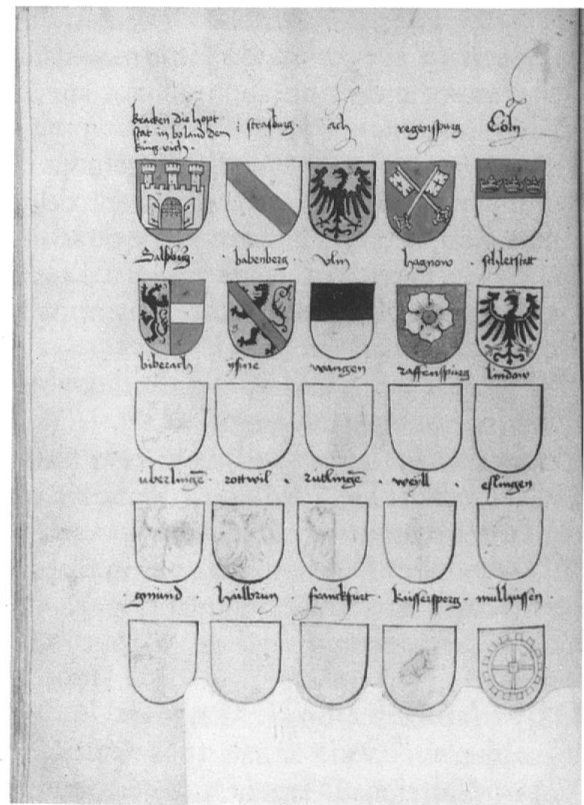 kracken die hopt
stat in boland dem
küng rich.
strasburg. ach regenspurg Cöln
Salspürg. babenberg. vlm hagnow. schletstatt.
biberach ysine wangen raffenspurg lindow
überlingē. rottwil. rütlingē. weyll. eslingen
gmünd. hailbrun. franckfurt. kayssersperg. mülhussen